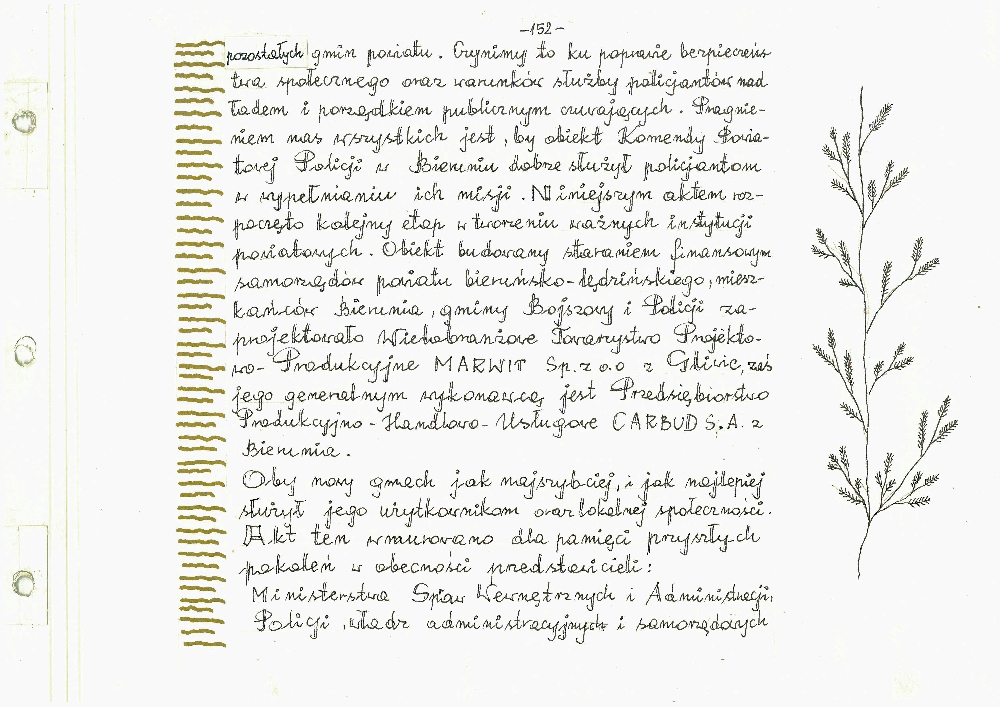 -152-
pozostałych gmin powiatu. Czynimy to ku poprawie bezpieczeńs-
twa społecznego oraz warunków służby policjantów nad
ładem i porządkiem publicznym czuwających. Pragnie-
niem nas wszystkich jest, by obiekt Komendy Powia-
towej Policji w Bieruniu dobrze służył policjantom
w wypełnianiu ich misji. Niniejszym aktem roz-
poczęto kolejny etap w tworzeniu ważnych instytucji
powiatowych. Obiekt budowany staraniem finansowym
samorządów powiatu bieruńsko-lędzińskiego, miesz-
kańców Bierunia, gminy Bojszowy i Policji za-
projektowało Wielobranżowe Towarzystwo Projekto-
wo-Produkcyjne MARWIT Sp. z o.o z Gliwic, zaś
jego generalnym wykonawcą jest Przedsiębiorstwo
Produkcyjno-Handlowo-Usługowe CARBUD S.A. z
Bierunia.
Oby nowy gmach jak najszybciej, i jak najlepiej
służył jego użytkownikom oraz lokalnej społeczności.
Akt ten wmurowano dla pamięci przyszłych
pokoleń w obecności przedstawicieli:
Ministerstwa Spraw Wewnętrznych i Administracji,
Policji, władz administracyjnych i samorządowych